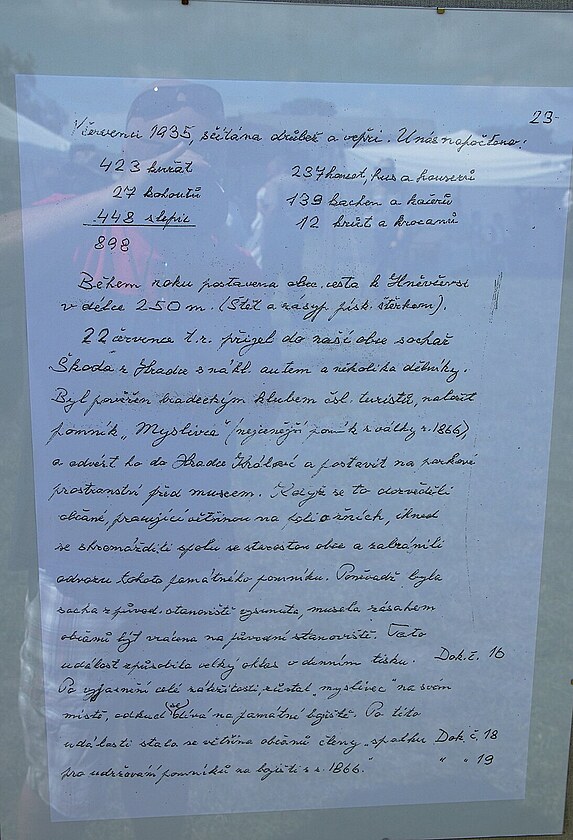 23-
V červenci 1935, sčítána drůbež a vepři. U nás napočteno:
423 kuřat 237 housat, hus a houserů
27 kohoutů 139 kachen a kačerů
448 slepic 12 krůt a krocanů
898
Během roku postavena obec. cesta k Hněvčevsi
v délce 250 m. (Štět a zásyp písk. štěrkem).
22 července t.r. přijel do naší obce sochař
Škoda z Hradce s nákl. autem a několika dělníky.
Byl pověřen hradeckým klubem čsl. turistů, naložit
pomník „Myslivce" (nejcennější pomník z války r. 1866),
a odvést ho do Hradce Králové a postavit na parkové
prostranství před museem. Když se to dozvěděli
občané, pracující většinou na polích o žních, ihned
se shromáždili spolu se starostou obce a zabránili
odvozu tohoto památného pomníku. Poněvadž byla
socha z původ. stanoviště vysunuta, musela zásahem
občanů být vrácena na původní stanoviště. Tato
událost způsobila velký ohlas v denním tisku. Dok. č. 16
Po vyjasnění celé záležitosti, zůstal „myslivec" na svém
místě, odkud se dívá na památné bojiště. Po této
události stala se většina občanů členy „spolku Dok. č. 18
pro udržování pomníků na bojišti z r. 1866." " " 19